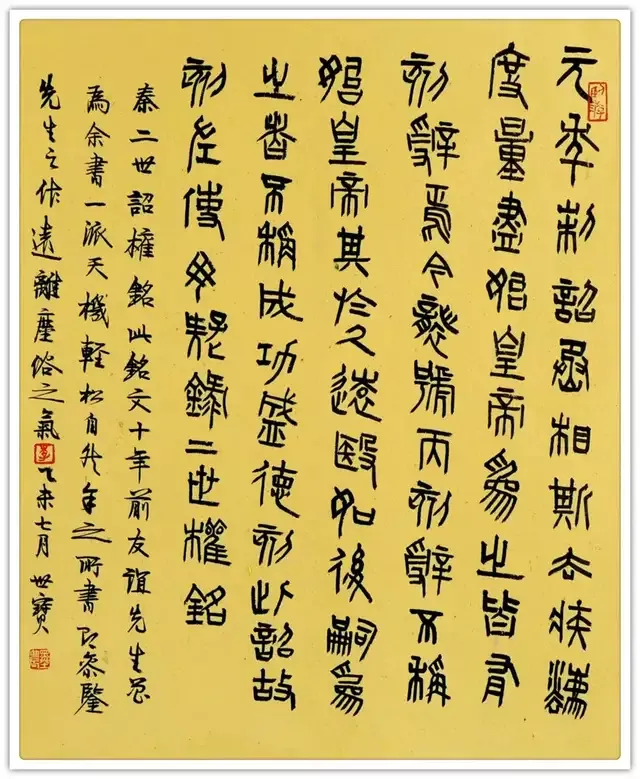 元年制詔丞相斯去疾灋
度量盡始皇帝為之皆有
刻辭焉今襲號而刻辭不稱
始皇帝其於久遠殹如後嗣為
之者不稱成功盛德刻此詔故
刻左使毋疑錄二世權銘
秦二世詔權銘此銘文十年前友誼先生
為余書一派天機輕松自然之所書鑒
先生之作遠離塵俗之氣乙未七月世寶